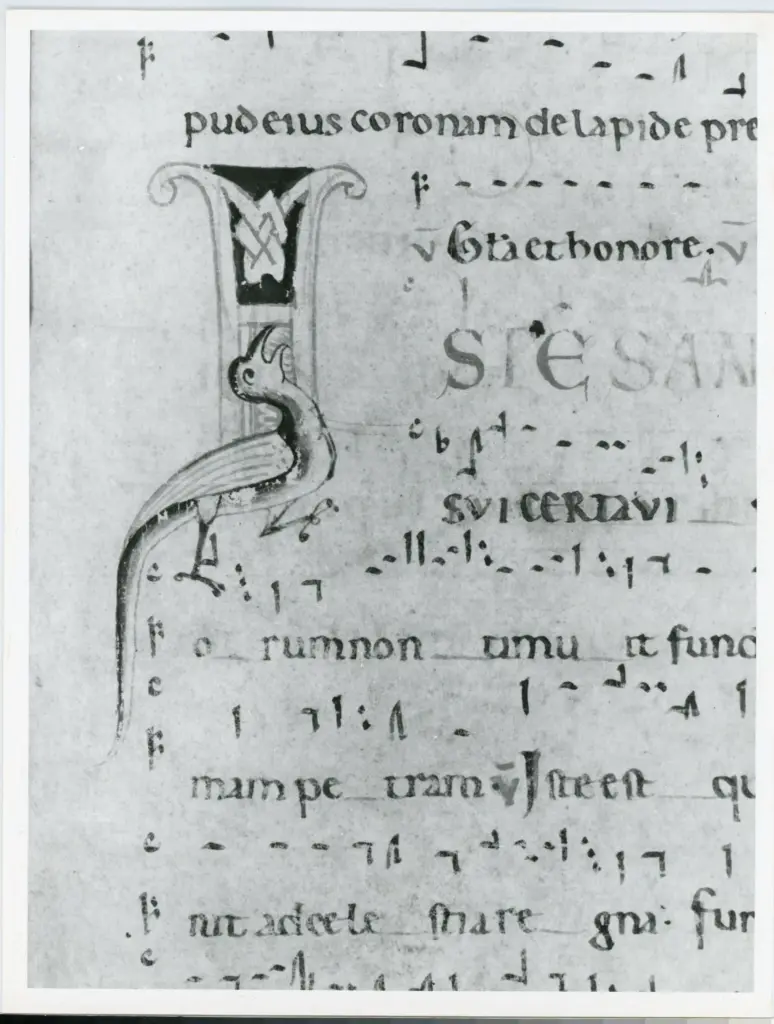 pud eius coronam de lapide pre
v Gła et honore. v
ISTE SAN
SVI CERTAVI
o rum non timu it func
mam pe tram v Iste est qu
nit ad cele stia re gna. fun